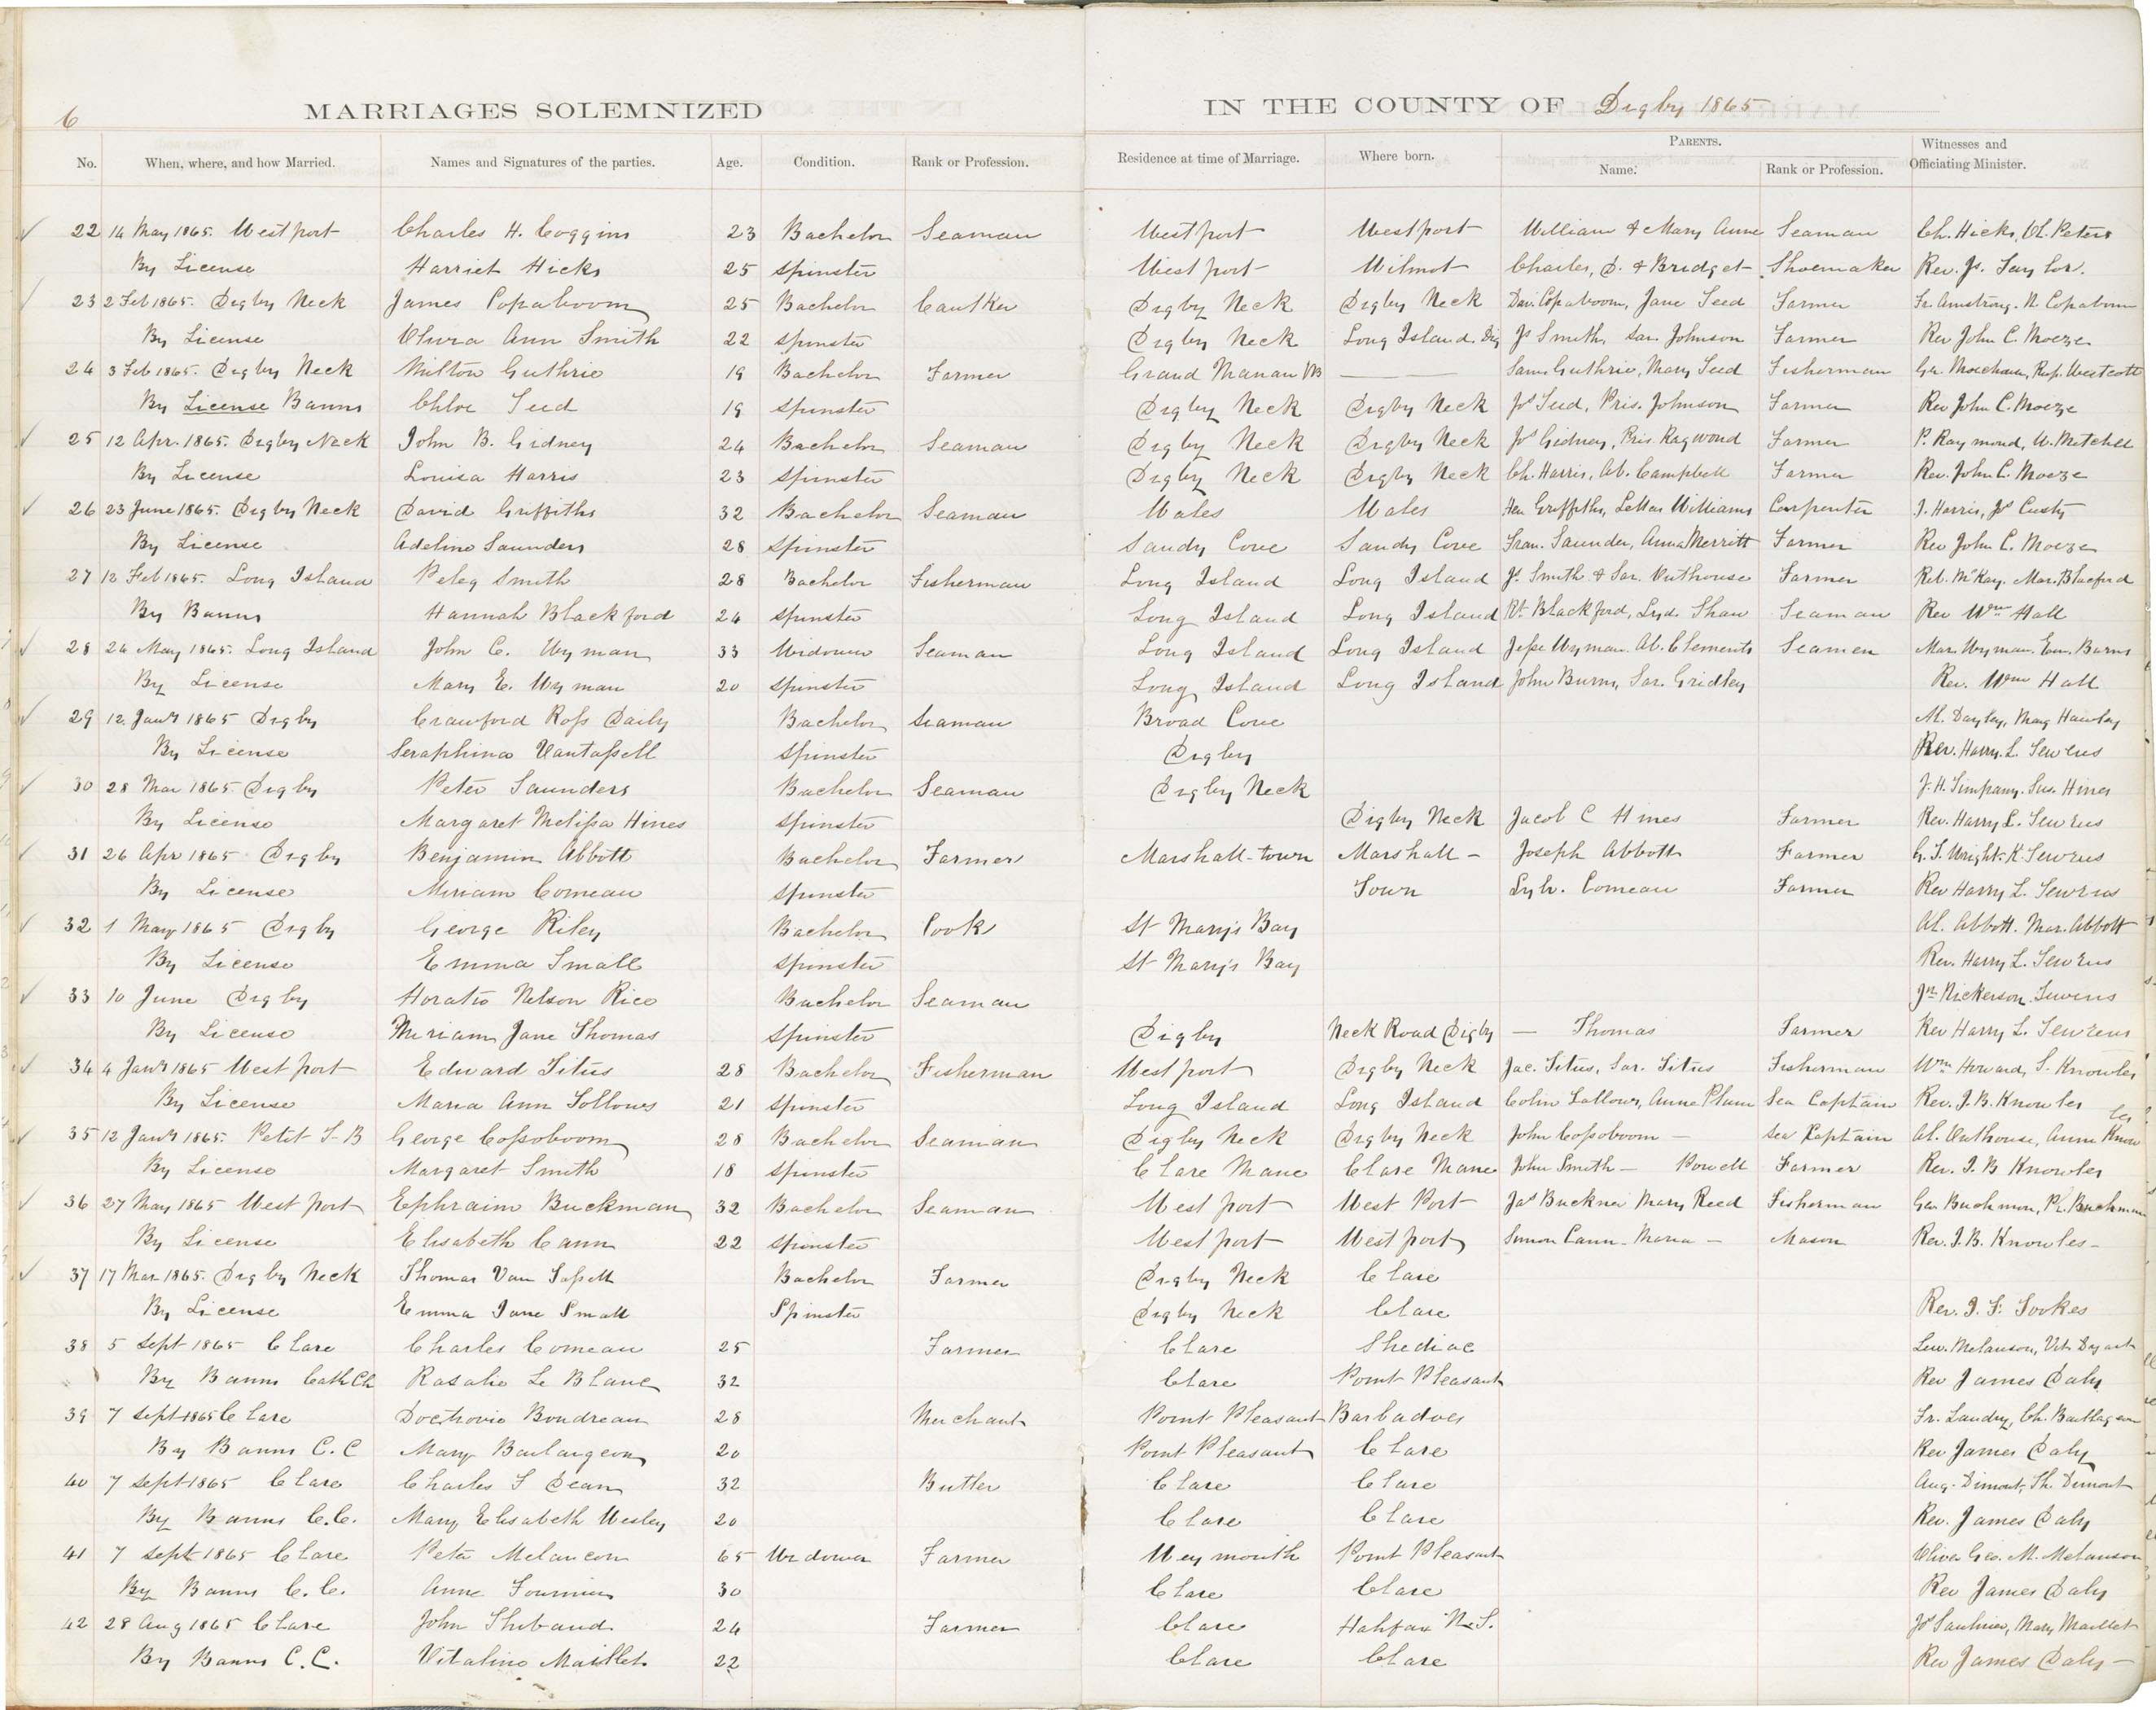 6 MARRIAGES SOLEMNIZED IN THE COUNTY OF Digby 1865
No. When, where, and how Married. Names and Signatures of the parties. Age. Condition. Rank or Profession. Residence at time of Marriage. Where born. PARENTS. Name. Rank or Profession. Witnesses and Officiating Minister.
22 14 May 1865. Westport Charles H. Coggins 23 Bachelor Seaman Westport Westport William & Mary Anne Seaman Ch. Hicks, Ch. Peters
By License Harriet Hicks 25 Spinster Westport Wilmot Charles, D. & Bridget Shoemaker Rev. Js. Taylor.
23 2 Feb 1865. Digby Neck James Copaboom 25 Bachelor Caulker Digby Neck Digby Neck Dav. Copaboom, Jane Seed Farmer Fr. Amstrong. N. Copaboom
By License Ann Smith 22 Spinster Digby Neck Long Island. Dig Js Smith, Sar. Johnson Farmer Rev John C. Morze
24 3 Feb 1865. Digby Neck Milton Guthrie 19 Bachelor Farmer Grand Manan NB — Sam. Guthrie, Mary Seed Fisherman Westcott
By License Banns Chloe Seed 19 Spinster Digby Neck Digby Neck Js Seed, Pris. Johnson Farmer Rev John C. Morze
25 12 Apr. 1865. Digby Neck John B. Gidney 24 Bachelor Seaman Digby Neck Digby Neck Js Gidney, Pris. Raymond Farmer P. Raymond, W. Mitchell
By License Louisa Harris 23 Spinster Digby Neck Digby Neck Ch. Harris, Ab. Campbell Farmer Rev. John C. Morze
26 23 June 1865. Digby Neck David Griffiths 32 Bachelor Seaman Wales Wales Hen Griffiths, Williams Carpenter J. Harris, Js Custy
By License Adeline Saunders 28 Spinster Sandy Cove Sandy Cove Fran. Saunder, Anna Merritt Farmer Rev John C. Morze
27 12 Feb 1865. Long Island Peleg Smith 28 Bachelor Fisherman Long Island Long Island Js. Smith & Sar. Outhouse Farmer Reb. McKay. Mar. Blacford
By Banns Hannah Blackford 24 Spinster Long Island Long Island Rt. Blackford, Lyd. Shaw Seaman Rev Wm Hall
28 24 May 1865. Long Island John C. Wyman 33 Widower Seaman Long Island Long Island Jesse Wyman. Ab. Clements Seamen Mar. Wyman. Em. Burns
By License Mary E. Wyman 20 Spinster Long Island Long Island John Burns, Sar. Gridley Rev. Wm Hall
29 12 Jany 1865 Digby Crawford Ross Daily Bachelor Seaman Broad Cove Al. Dayley, Mary Hawley
By License Seraphina Vantassell Spinster Digby Rev. Harry. L. Sewens
30 28 Mar 1865. Digby Peter Saunders Bachelor Seaman Digby Neck J. H. Timpany. Sus. Hines
By License Margaret Melissa Hines Spinster Digby Neck Jacob C Hines Farmer Rev. Harry L. Sewens
31 26 Apr 1865 Digby Benjamin Abbott Bachelor Farmer Marshall-town Marshall- Joseph Abbott Farmer G. T. Wright. K. Sewens
By License Miriam Comeau Spinster Town Sylv. Comeau Farmer Rev Harry L. Sewens
32 1 May 1865 Digby George Riley Bachelor Cook St Mary's Bay Al. Abbott. Mar. Abbott
By License Emma Small Spinster St Mary's Bay Rev. Harry L. Sewens
33 10 June Digby Horatio Nelson Rice Bachelor Seaman Jn Nickerson. Sewens
By License Miriam Jane Thomas Spinster Digby Neck Road Digby — Thomas Farmer Rev Harry L. Sewens
34 4 Jany 1865 Westport Edward Titus 28 Bachelor Fisherman Westport Digby Neck Jac. Titus, Sar. Titus Fisherman Wm Howard, S. Knowles
By License Maria Ann Tollows 21 Spinster Long Island Long Island Colin Tollows, Anne Plum Sea Captain Rev. J. B. Knowles
35 12 Jany 1865. Petit T-B George Cossoboom 28 Bachelor Seaman Digby Neck Digby Neck John Cossoboom — Sea Captain Al. Outhouse, Anne Know les
By License Margaret Smith 18 Spinster Clare Mane Clare Mane John Smith — Powell Farmer Rev. J. B Knowles
36 27 May 1865 Westport Ephraim Buckman 32 Bachelor Seaman Westport West Port Jas Buckner Mary Reed Fisherman Geo Buchman, Pr. Buchman
By License Elisabeth Cann 22 Spinster Westport Westport Simon Cann - Maria — Mason Rev. J. B. Knowles—
37 17 Mar 1865. Digby Neck Thomas Van Tassell Bachelor Farmer Digby Neck Clare
By License Emma Jane Small Spinster Digby Neck Clare Rev. J. F. Tookes
38 5 Sept 1865 Clare Charles Comeau 25 Farmer Clare Shediac Lew. Melanson, Vit.
By Banns Cath Ch Rosalie Le Blanc 32 Clare Point Pleasant Rev James Daly
39 7 Sept 1865 Clare Boudreau 28 Merchant Point Pleasant Barbadoes Fr. Landry, Ch.
By Banns C. C Mary 20 Point Pleasant Clare Rev James Daly
40 7 Sept 1865 Clare Charles T Dean 32 Butler Clare Clare Aug. Dimont, Th. Dimont
By Banns C. C. Mary Elisabeth Wesley 20 Clare Clare Rev. James Daly
41 7 Sept 1865 Clare Peter Melancon 65 Widower Farmer Weymouth Point Pleasant Olive. Geo. M. Melanson
By Banns C. C. Anne Fournier 30 Clare Clare Rev James Daly
42 28 Aug 1865 Clare John Thibaud 24 Farmer Clare Halifax N.S. Js Saulnier, Mary Maillet
By Banns C. C. Vitaline Maillet. 22 Clare Clare Rev James Daly —